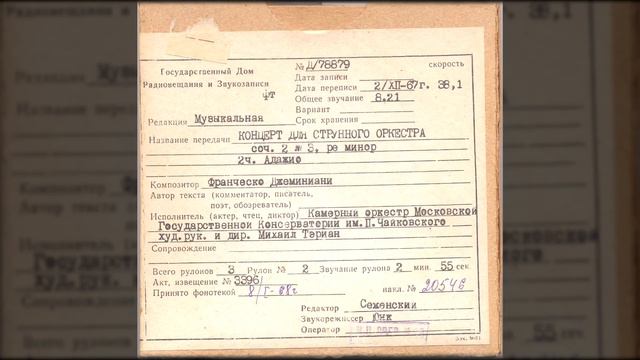 Государственный Дом
Радиовещания и Звукозаписи
№ Д/78879 скорость
Дата записи
Дата переписи 2/XII-67г. 38,1
Общее звучание 8.21
Вариант
Срок хранения
Редакция Музыкальная
Название передачи КОНЦЕРТ ДЛЯ СТРУННОГО ОРКЕСТРА
соч. 2 № 3, ре минор
2ч. Адажио
Композитор Франческо Джеминиани
Автор текста (комментатор, писатель,
поэт, обозреватель)
Исполнитель (актер, чтец, диктор) Камерный оркестр Московской
Государственной Консерватерии им.П.Чайковского
худ.рук. и дир. Михаил Тэриан
Сопровождение
Всего рулонов 3 Рулон № 2 Звучание рулона 2 мин. 55 сек.
Акт, извещение № 3396/
Принято фонотекой 8/I-68г накл. № 20546
Редактор Семенский
Звукорежиссер
Оператор